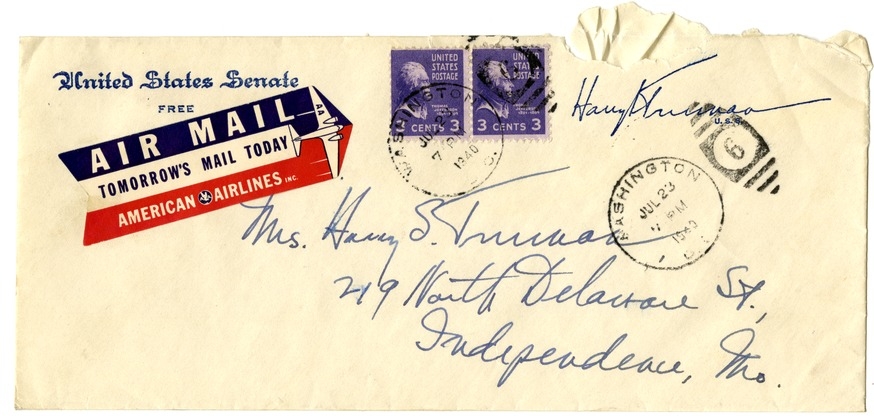 United States Senate
FREE
AIR MAIL
AA
TOMORROW'S MAIL TODAY
AMERICAN AIRLINES INC.
UNITED STATES POSTAGE
THOMAS JEFFERSON
3 CENTS 3
UNITED STATES POSTAGE
3 CENTS 3
WASHINGTON
JUL
7 PM
1940
D.C.
Harry S Truman
U.S.S.
6
WASHINGTON
JUL 23
7 PM
1940
Mrs. Harry S. Truman
219 North Delaware St.,
Independence, Mo.